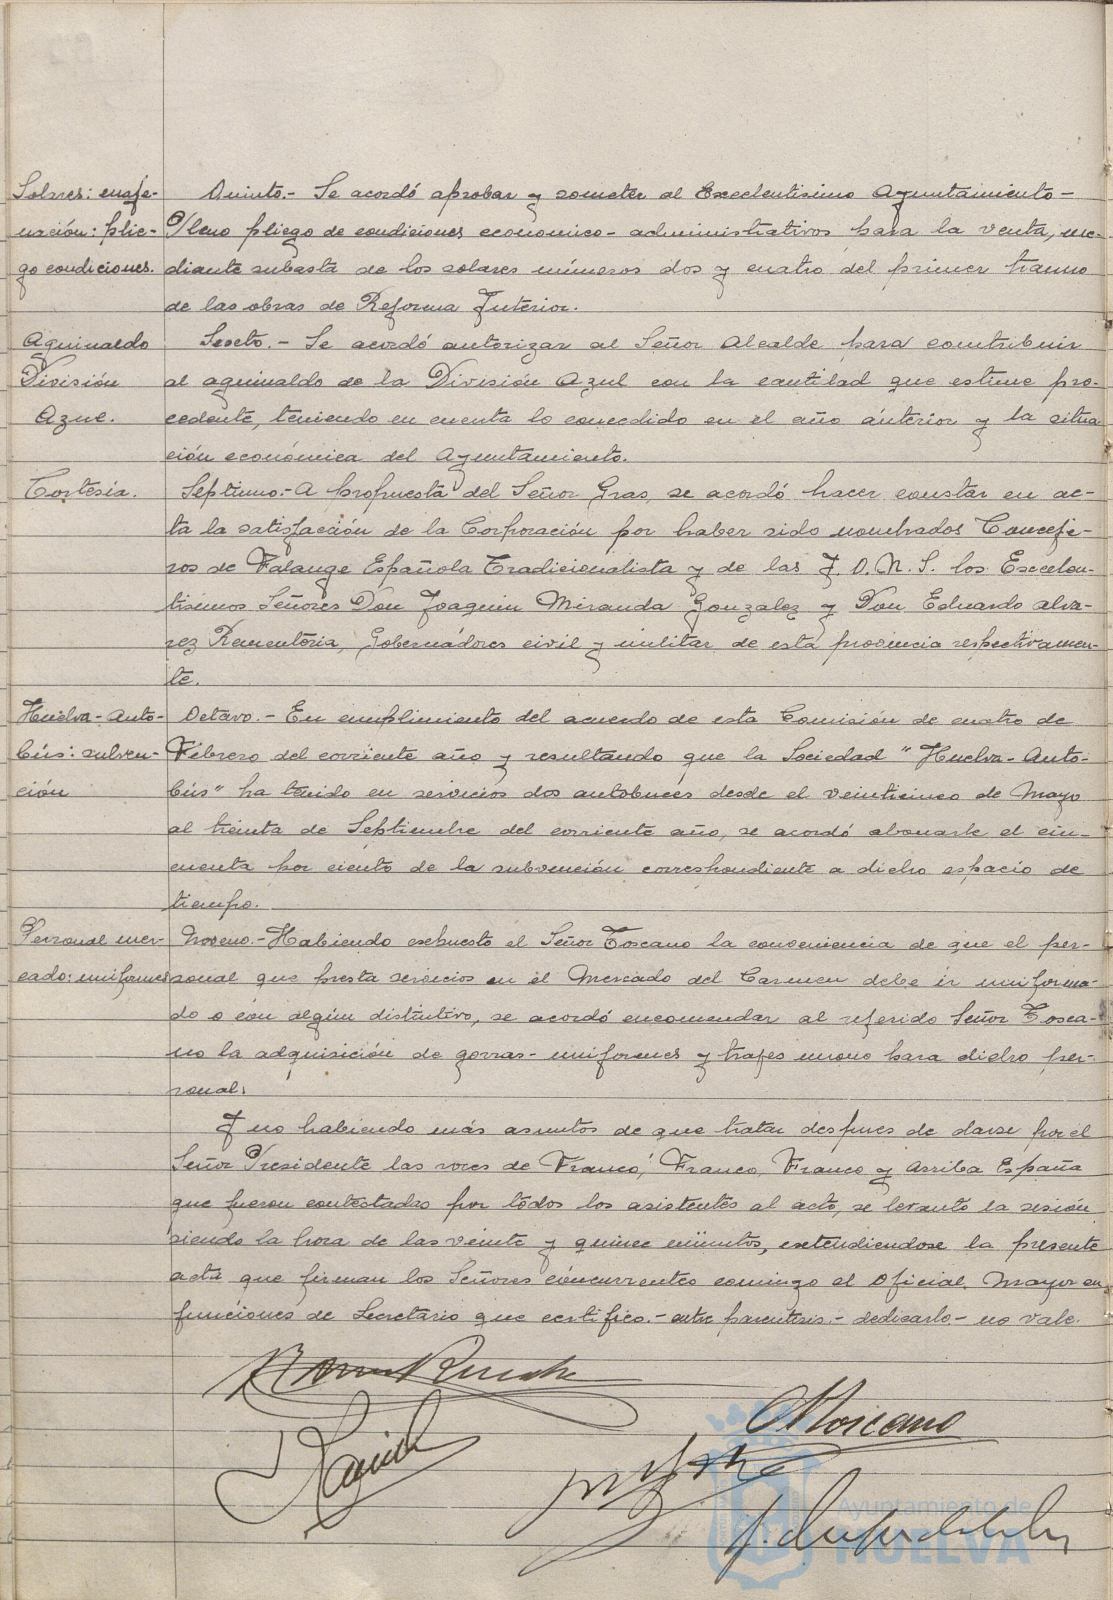 Solares: enaje-
nación: plie-
go condiciones.
Quinto.- Se acordó aprobar y someter al Excelentisimo Ayuntamiento-
Pleno pliego de condiciones economico-administrativos para la venta, me-
diante subasta de los solares números dos y cuatro del primer tramo
de las obras de Reforma Interior.
Aguinaldo
División
Azul.
Sexto.- Se acordó autorizar al Señor Alcalde para contribuir
al aguinaldo de la División Azul con la cantidad que estime pro-
cedente, teniendo en cuenta lo concedido en el año anterior y la situa
ción económica del Ayuntamiento.
Cortesia.
Septimo.- A propuesta del Señor Gras, se acordó hacer constar en ac-
ta la satisfacción de la Corporación por haber sido nombrados Conseje-
ros de Falange Española Tradicionalista y de las J.O.N.S. los Excelen-
tisimos Señores Don Joaquin Miranda Gonzalez y Don Eduardo Alva-
rez Rementeria, Gobernadores civil y militar de esta provincia respectivamen-
te.
Huelva-Auto-
bús: subven-
ción
Octavo.- En cumplimiento del acuerdo de esta Comisión de cuatro de
Febrero del corriente año y resultando que la Sociedad "Huelva-Auto-
bús" ha tenido en servicios dos autobuses desde el veinticinco de Mayo
al treinta de Septiembre del corriente año, se acordó abonarle el cin-
cuenta por ciento de la subvención correspondiente a dicho espacio de
tiempo.
Personal mer-
cado: uniformes
Noveno.- Habiendo expuesto el Señor Toscano la conveniencia de que el per-
sonal que presta servicios en el Mercado del Carmen debe ir uniforma-
do o con algún distintivo, se acordó encomendar al referido Señor Tosca-
no la adquisición de gorras-uniformes y trajes mono para dicho per-
sonal.
Y no habiendo más asuntos de que tratar despues de darse por el
Señor Presidente las voces de Franco, Franco, Franco y Arriba España
que fueron contestadas por todos los asistentes al acto, se levantó la sesión
siendo la hora de las veinte y quince minutos, extendiendose la presente
acta que firman los Señores concurrentes conmigo el Oficial Mayor en
funciones de Secretario que certifico.- entre parentesis.- dedicarlo- no vale.
Toscano
Ayuntamiento de
HUELVA